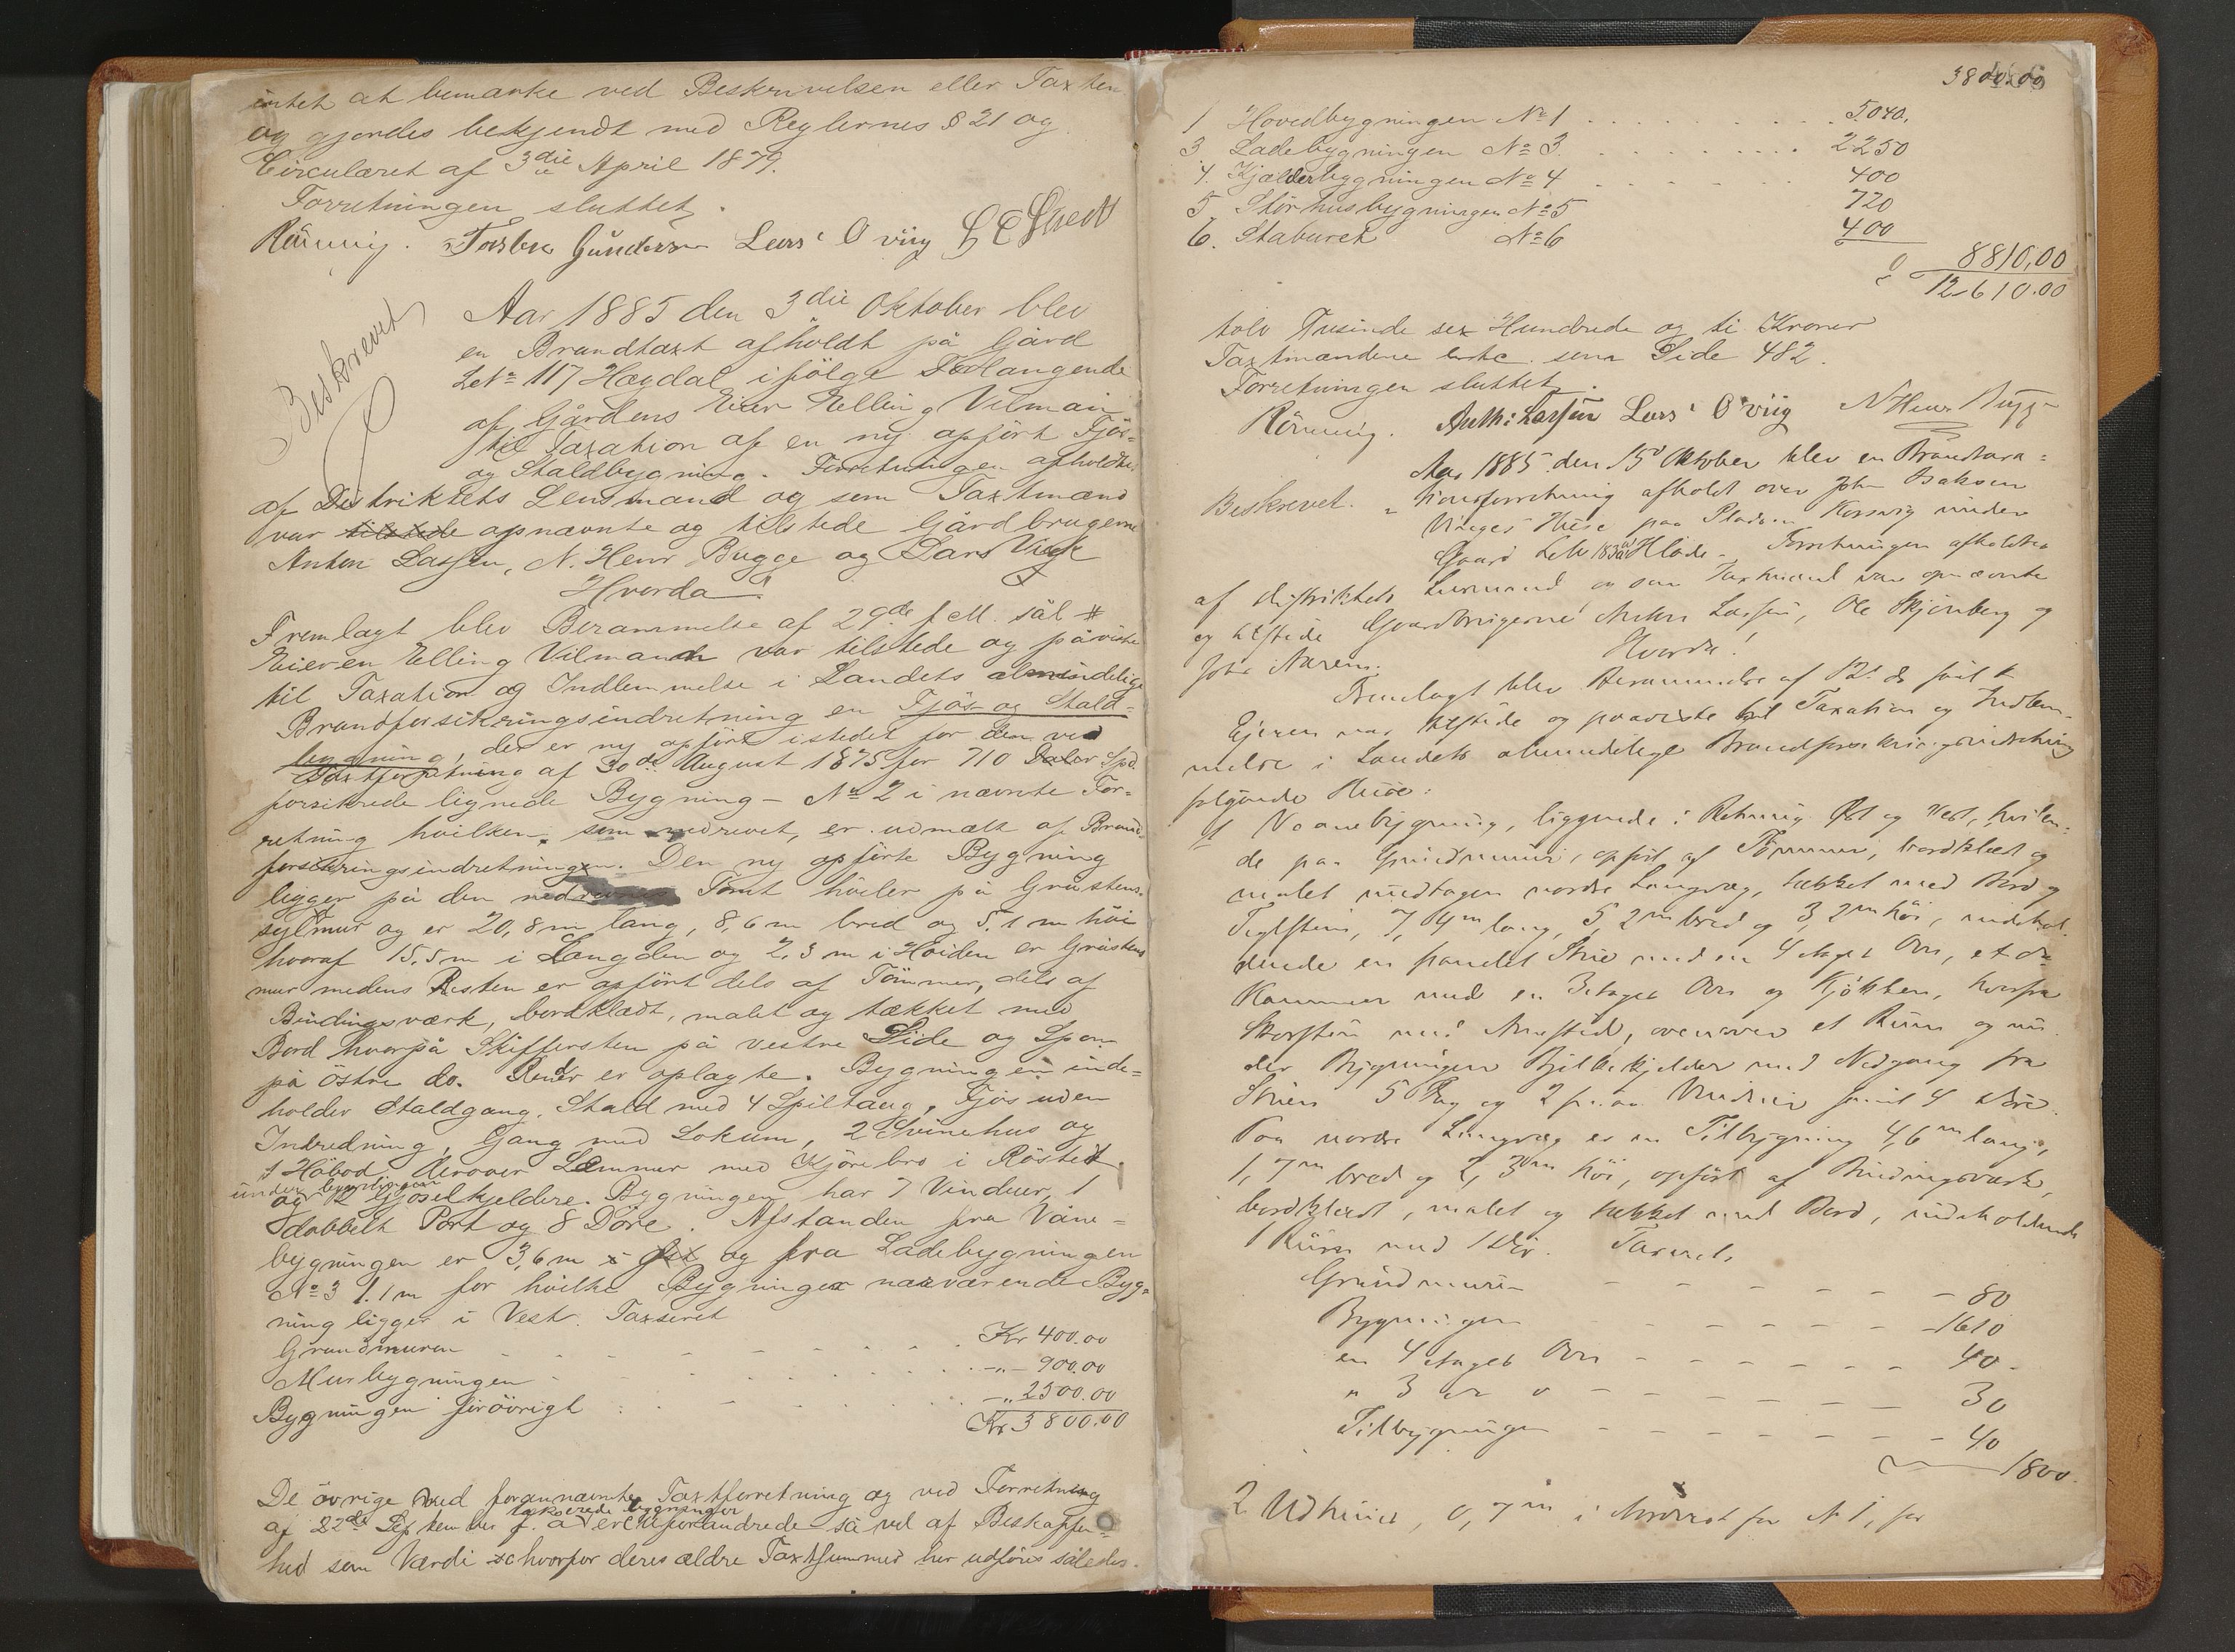 intet at bemærke ved Beskrivelsen eller Taxten
og gjordes bekjendt med Reglernes § 21 og
Circulæret af 3die April 1879.
Forretningen sluttet.
Rönning. Torber Gundersen Lars Oviig
Beskrevet
Aar 1885 den 3die Oktober blev
en Brandtaxt afholdt på Gård
LNo 117 Hægdal ifölge Forlangende
af Gårdens Eier Elling Vilmann
til Taxation af en ny opfört Fjös-
og Staldbygning. Forretningen afholdtes
af Distriktets Lensmand og som Taxtmænd
var tilstede opnævnte og tilstede Gårdbrugerne
Anton Lassen, N. Henr Bugge og Lars Viig
Hvorda!
Fremlagt blev Berammelse af 29de f M. sål #
Eieren Elling Vilmann var tilstede og påviste
til Taxation og Indlemmelse i Landets almindelige
Brandforsikringsindretning en Fjös og Stald-
bygning, der er ny opfört istedet for den ved
Taxtforretning af 30de August 1875 for 710 Daler Spd.
forsikrede lignede Bygning - No 2 i nævnte For-
retning hvilken, som nedrevet, er udmældt af Brand-
forsikringsindretningen. Den ny opförte Bygning
ligger på den Tomt hviler på Gråstens-
sylmur og er 20,8 m lang, 8,6 m bred og 5,1 m höi
hvoraf 15,5 m i Længden og 2,3 m i Höiden er Gråstens
mur medens Resten er opfört dels af Tömmer, dels af
Bindingsværk, bordklædt, malet og tækket med
Bord hvorpå Skiffersten på vestre Side og Spon
på östre do. er oplagte. Bygningen inde-
holder Staldgang. Stald med 4 Spiltaug, Fjös uden
Indredning, Gang med Lokum, 2 Svinehus og
1 Höbod. Herover Lemmer med Kjörebro i Röstet
under bygningen
og 2 Gjöselkjeldere. Bygningen har 7 Vinduer, 1
dobbelt Port og 8 Döre. Afstanden fra Våne-
bygningen er 3,6 m og fra Ladebygningen
No 3 1.1 m for hvilke Bygninger nærværende Byg-
ning ligger i Vest. Taxseret
Grundmuren Kr 400.00
Murbygningen -"- 900.00
Bygningen foröivrigt -"- 2500.00
Kr 3800.00
De övrige ved forannævnte Taxtforretning og ved Forretning
takserede bygninger
af 22de September f. a er uforandrede så vel af Beskaffen-
hed som Værdi hvorfor deres ældre Taxtsummer her udföres således.
3800.00
1 Hovedbygningen No 1 5040.
3 Ladebygningen No 3 2250
4. Kjælderbygningen No 4 400
5 Störhusbygningen No 5 720
6. Staburet No 6 400
8810,00
12610.00
tolv Tusinde sex Hundrede og ti Kroner
Taxtmændene som Side 482.
Forretningen sluttet.
Rönning. Anth: Lassen Lars Oviig N Henr Bugge
Beskrevet.
Aar 1885 den 15d Oktober blev en Brandtaxa-
tionsforretning afholdt over
Huse paa Pladsen Korsvig under
Gaard LNo Hlade. Forretningen afholdtes
af Distriktets Lensmand og som Taxtmænd var opnævnte
og tilstede Gaardbrugerne Anton Lassen, Ole Skjönberg og
Hvorda!
Fremlagt blev Berammelse af 12d ds saal #
Ejeren var tilstede og paaviste til Taxation og Indlem-
melse i Landets almindelige Brandforsikringsindretning
fölgende Huse:
1 Vaanebygning, liggende i Retning Öst og Vest, hvilen-
de paa Grundmur, opfört af Tömmer, bordklædt og
malet undtagen nordre Langvæg, tækket med Bord og
Teglsten, 7,4m lang, 5,2m bred og 3,2m höi, indehol-
dende en panelet Stue med en 4 etages Ovn, et do
Kammer med en 3 etages Ovn og Kjökken, hvorfra
Skorsten med Arnested, ovenover et Rum og un-
der Bygningen Bjelkekjelder med Nedgang fra
Stuen 5 Fag og 2 Vinduer samt 4 Döre.
Paa nordre Langvæg er en Tilbygning 4,6m lang,
1,7m bred og 2,3m höi, opfört af Bindingsværk,
bordklædt, malet og tækket med Bord, indeholdende
1 Rum med 1 Dör. Taxeret.
Grundmuren 80
Bygningen 1610
en 4 etages Ovn 40 -
" 3 30
Tilbygningen 40
1800.
2 Udhuset, 0,7m i for N 1,